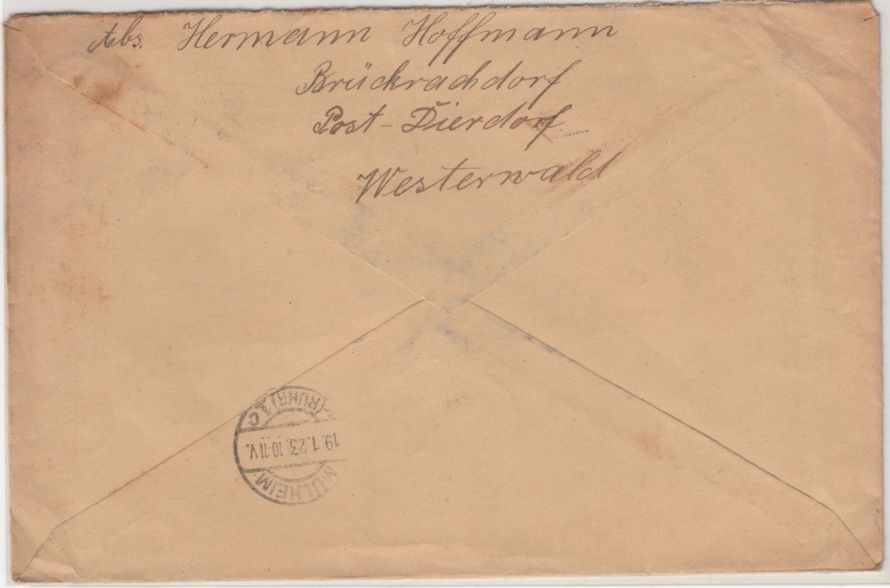 Abs. Hermann Hoffmann
Brückrachdorf
Post-Dierdorf
Westerwald
MÜLHEIM
19.1.23.10-11V.
(RUHR)